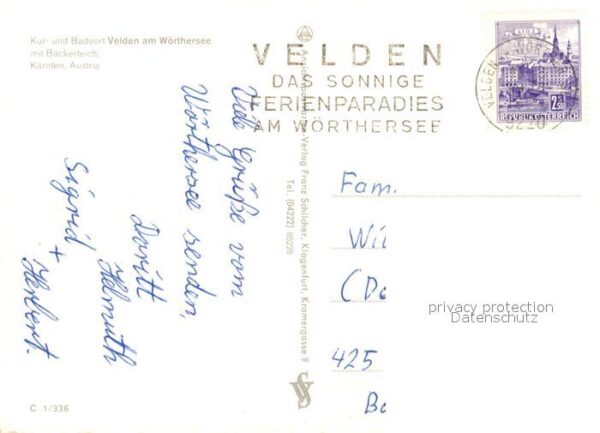 Kur- und Badeort Velden am Wörthersee
mit Bäckerteich,
Kärnten, Austria
VELDEN
DAS SONNIGE
FERIENPARADIES
AM WÖRTHERSEE
REPUBLIK ÖSTERREICH
Viele Grüße vom
Wörthersee senden,
Doritt
Helmuth
Sigrid + Herbert.
Verlag Franz Schilcher, Klagenfurt, Kramergasse 9
Tel. (04222) 85228
Fam.
Wil
(Do
425
Bo
privacy protection
Datenschutz
C 1/336